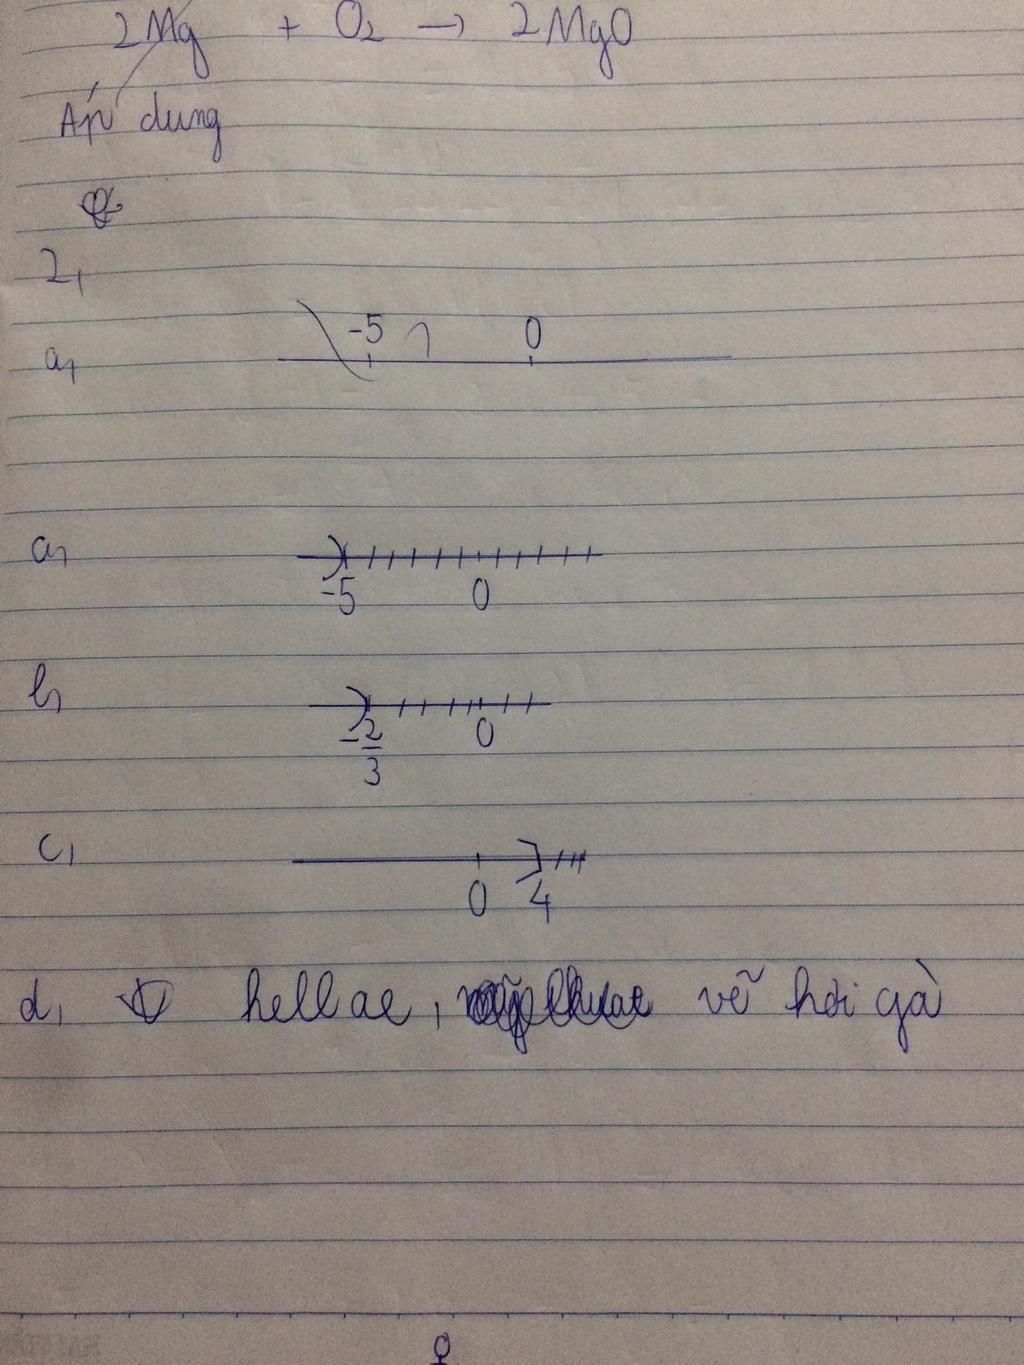 2Mg + O₂ → 2MgO
Áp dụng
2,
a, -5 0
a, -5 0
b, -2/3 0
c, 0 4
d, hellae, vẽ hơi gà